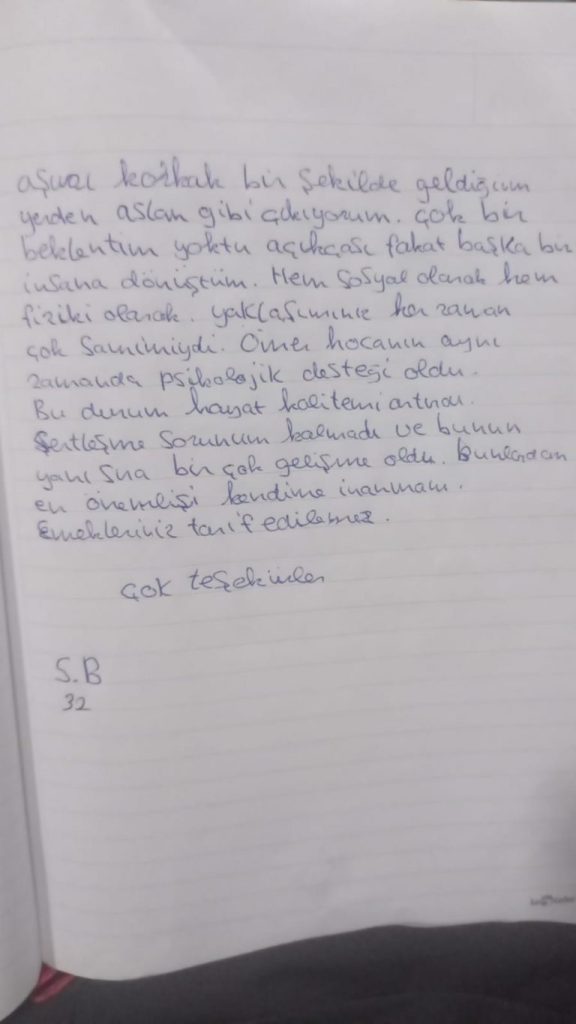 aşırı korkak bir şekilde geldiğim
yerden aslan gibi çıkıyorum. çok bir
beklentim yoktu açıkçası fakat başka bir
insana dönüştüm. Hem sosyal olarak hem
fiziki olarak. yaklaşımınız her zaman
çok samimiydi. Ömer hocanın aynı
zamanda psikolojik desteği oldu.
Bu durum hayat kalitemi artırdı.
Sertleşme sorunum kalmadı ve bunun
yanı sıra bir çok gelişme oldu. Bunlardan
en önemlisi kendime inanmam.
Emekleriniz tarif edilemez.
çok teşekkürler
S.B
32